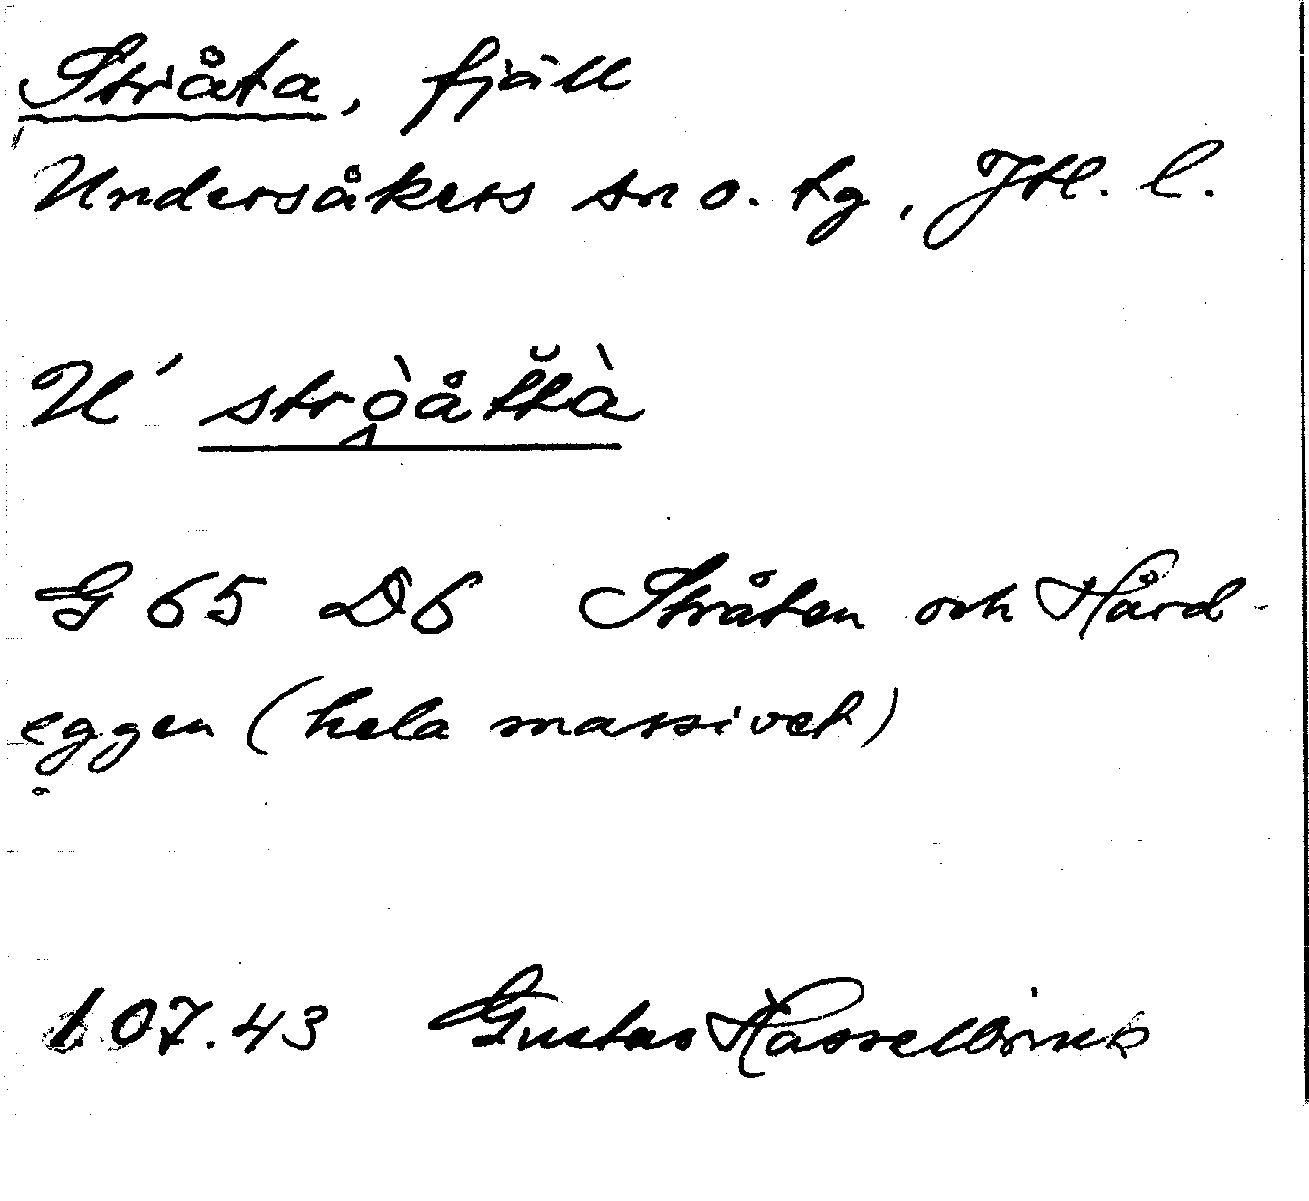 Stråta, fjäll
Undersåkers sn o. tg, Jtl. l.
U' stròåt̆tà
G 65 D6 Stråten och Hård-
eggen (hela massivet)
107.43 Gustav Hasselbrink